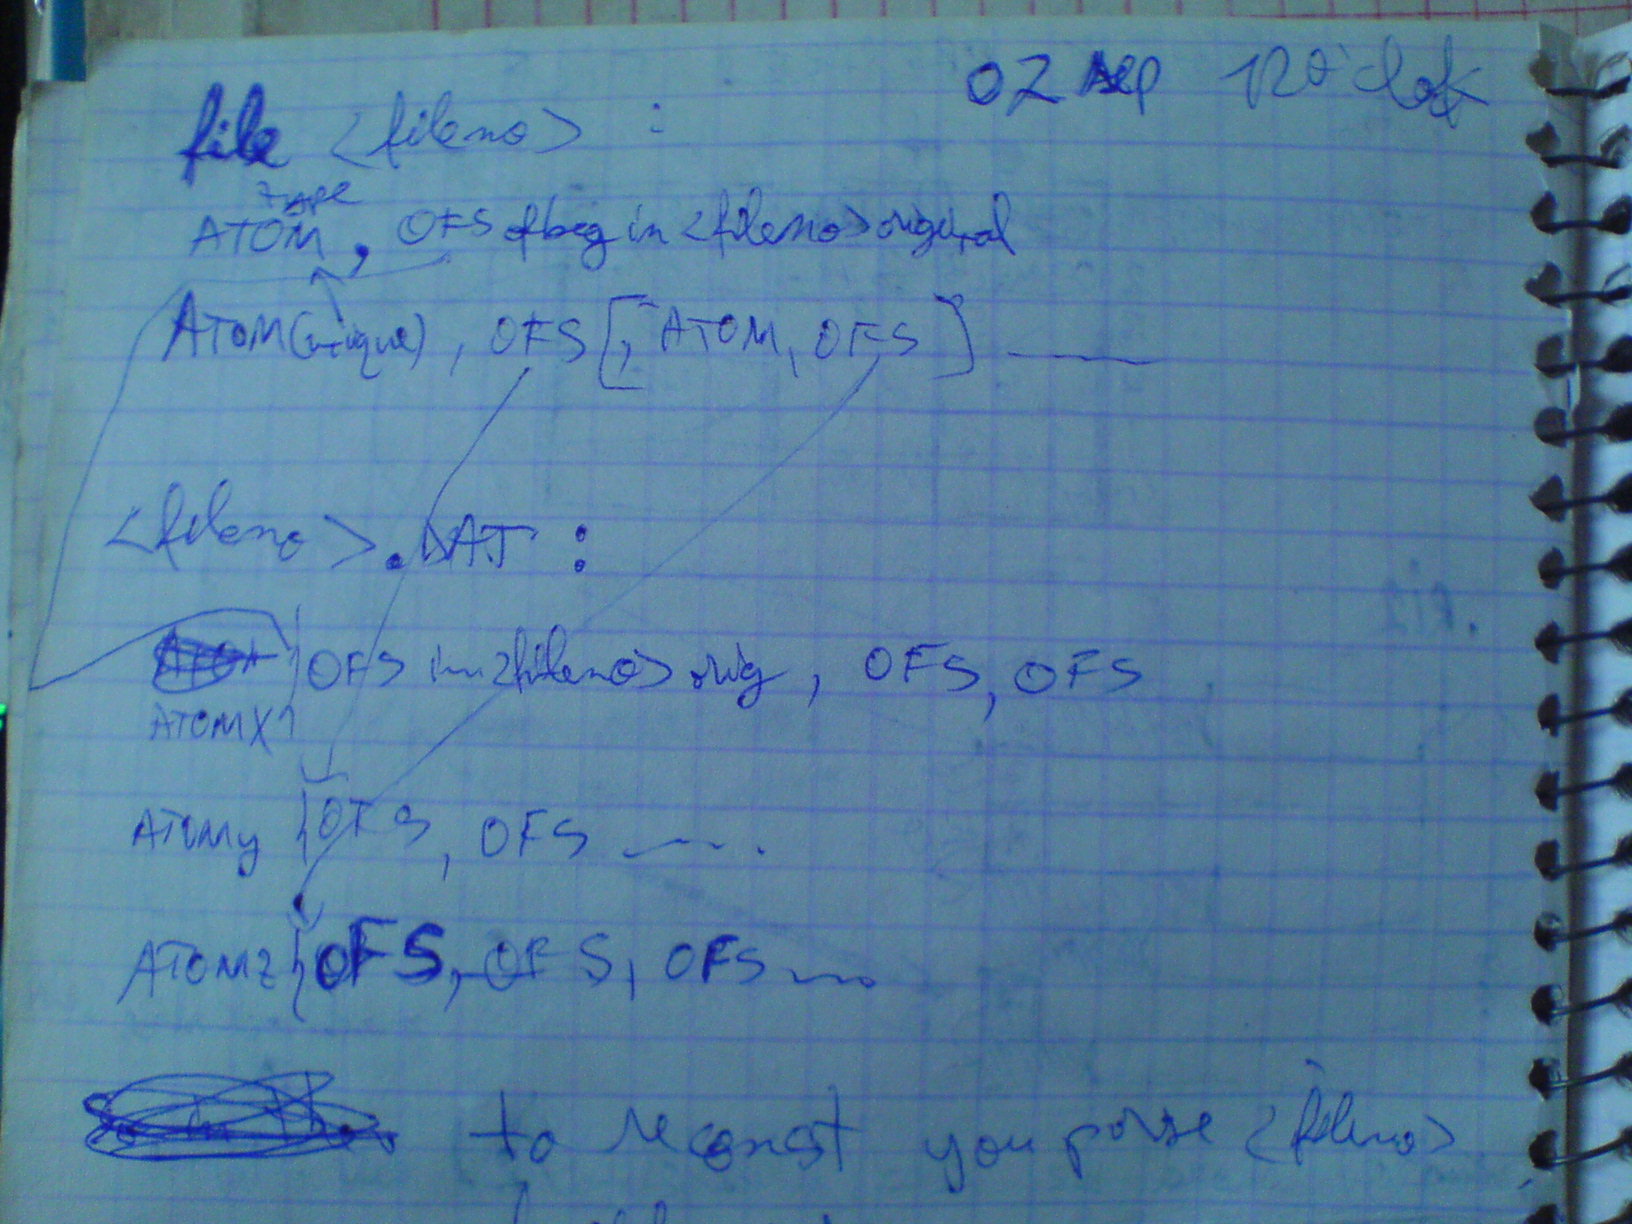 02 Sep 12 o'clok
file <fileno> :
type
ATOM, OFS of beg in <fileno> original
ATOM(unique), OFS [, ATOM, OFS]
<fileno>.DAT :
OFS in <fileno> orig, OFS, OFS
ATOMX
ATOMy OFS, OFS ....
ATOMz OFS, OFS, OFS ...
to reconst you parse <fileno>